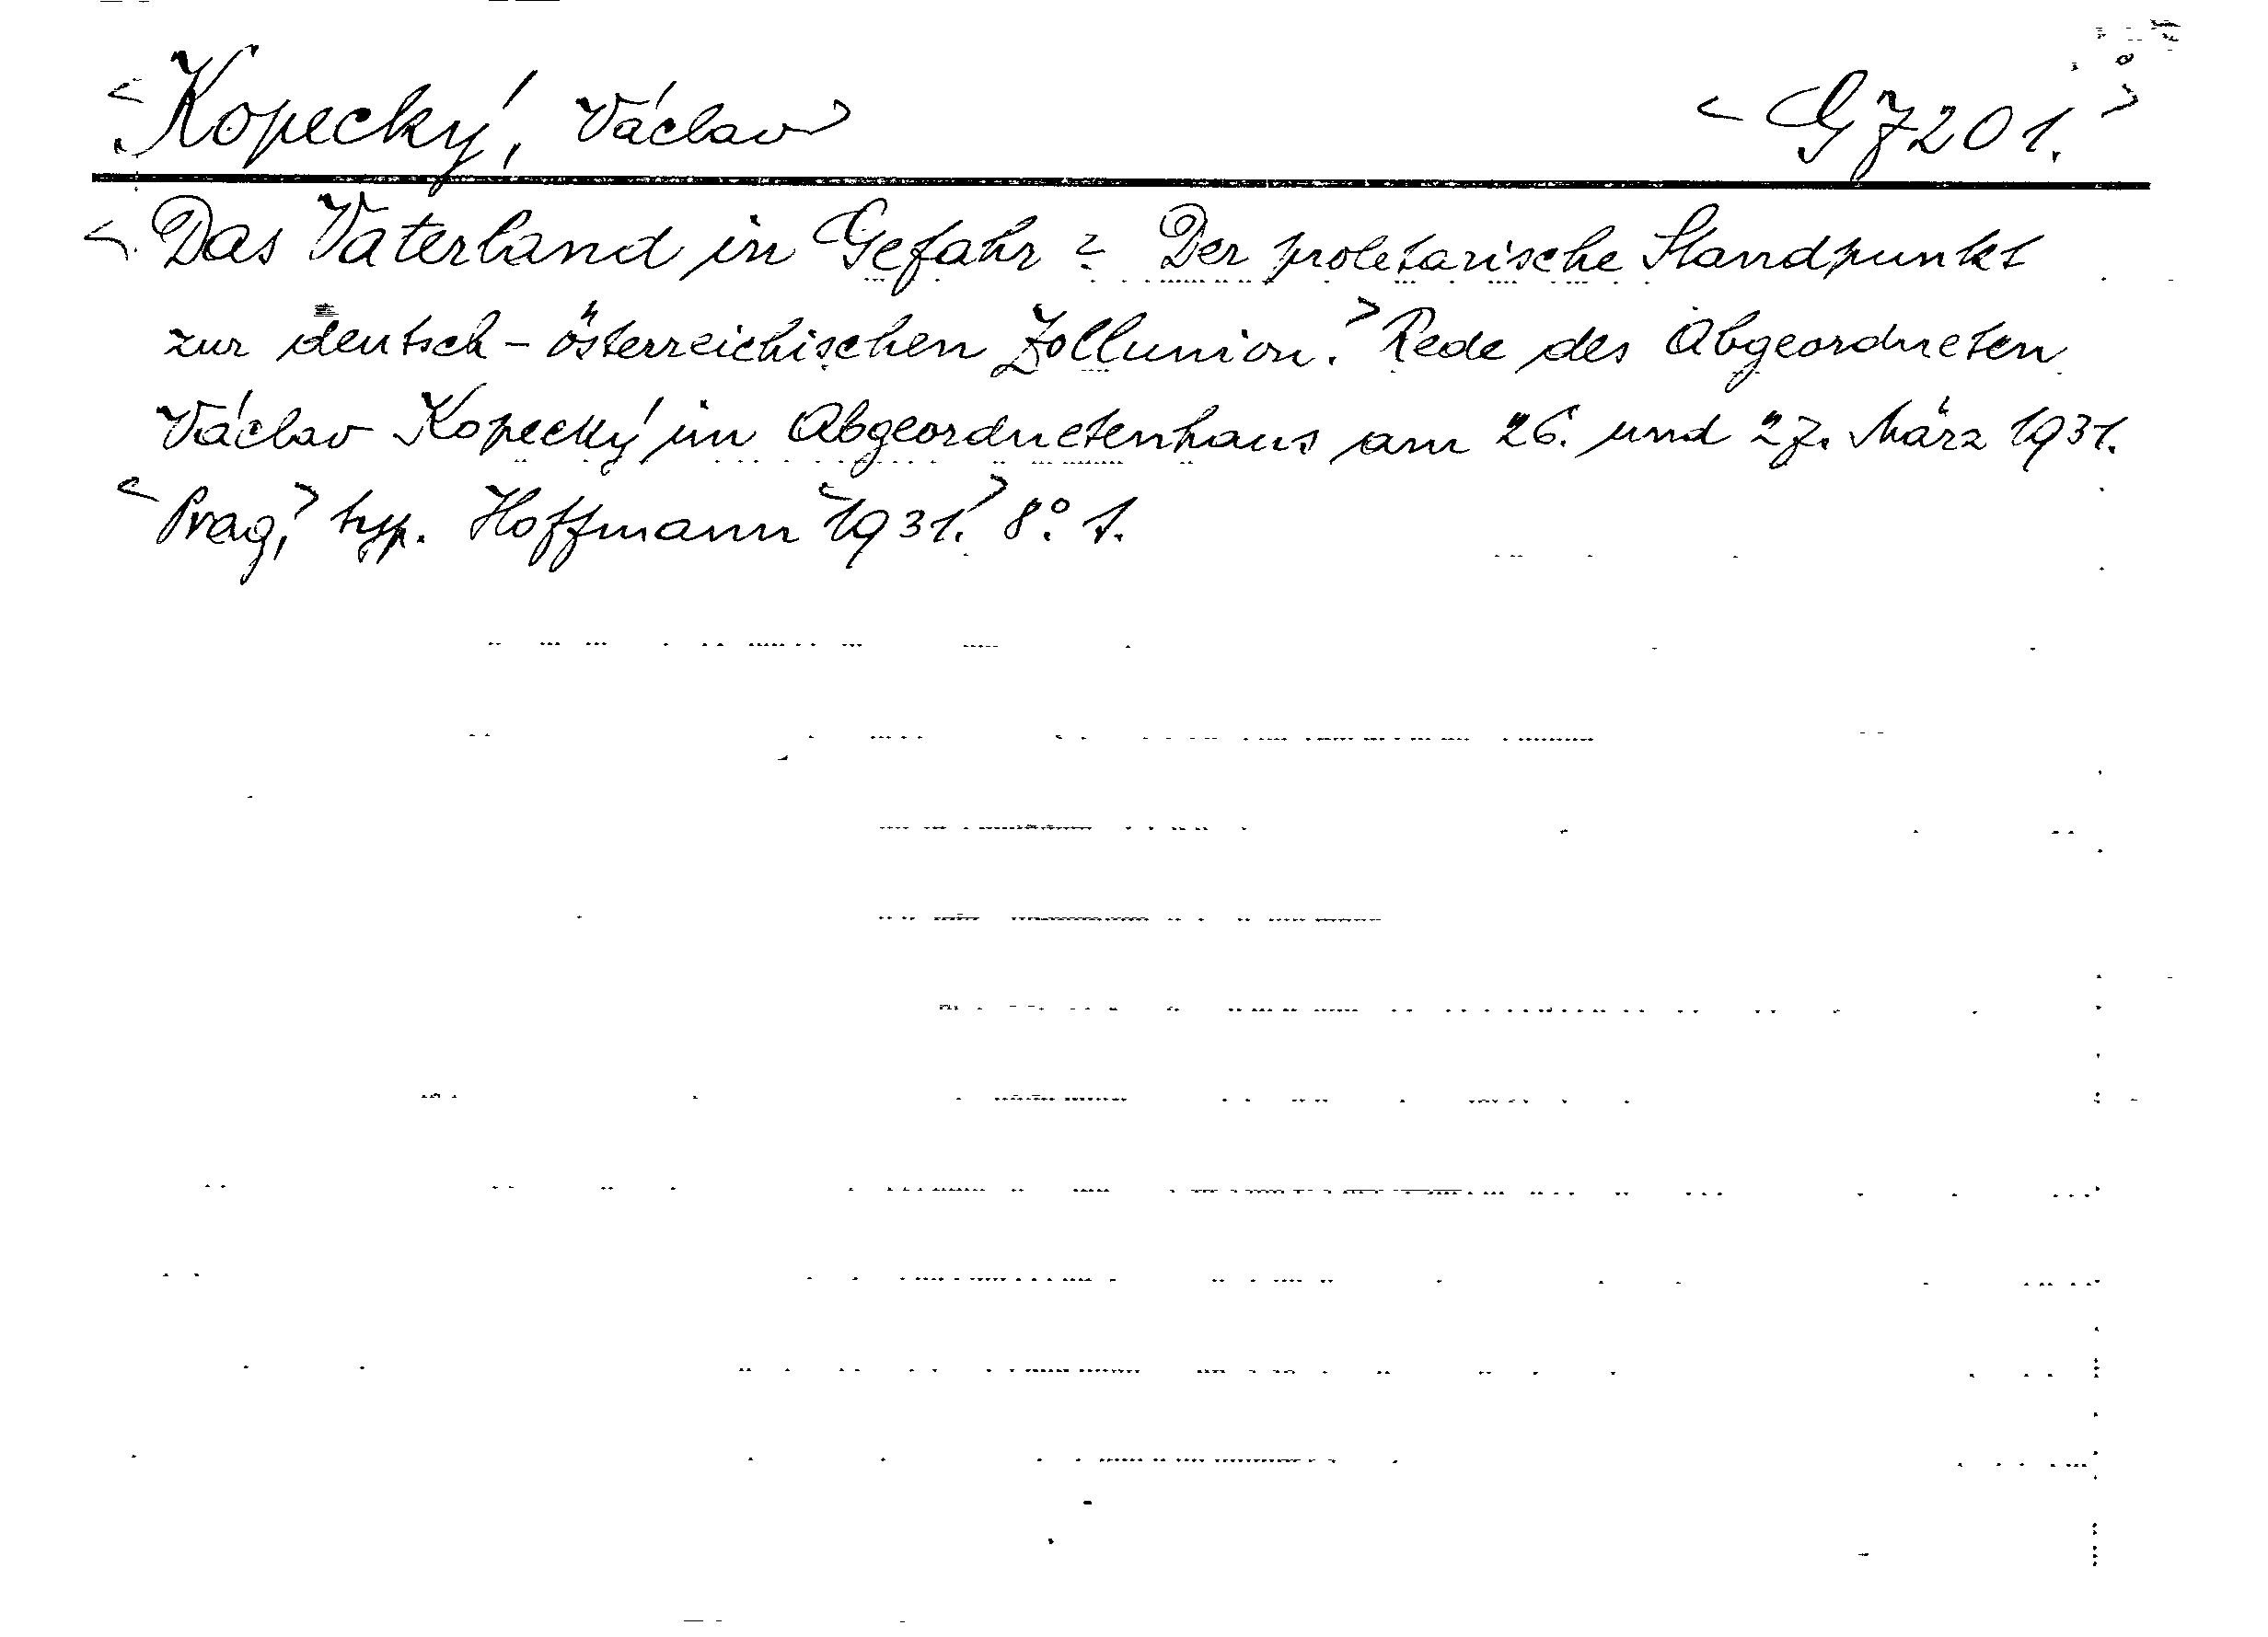 <Kopecký, Václav> <G 7201.>
<Das Vaterland in Gefahr? Der proletarische Standpunkt
zur deutsch-österreichischen Zollunion.> Rede des Abgeordneten
Václav Kopecký im Abgeordnetenhaus am 26. und 27. März 1931.
<Prag,> typ. Hoffmann <1931.> 8°. 1.